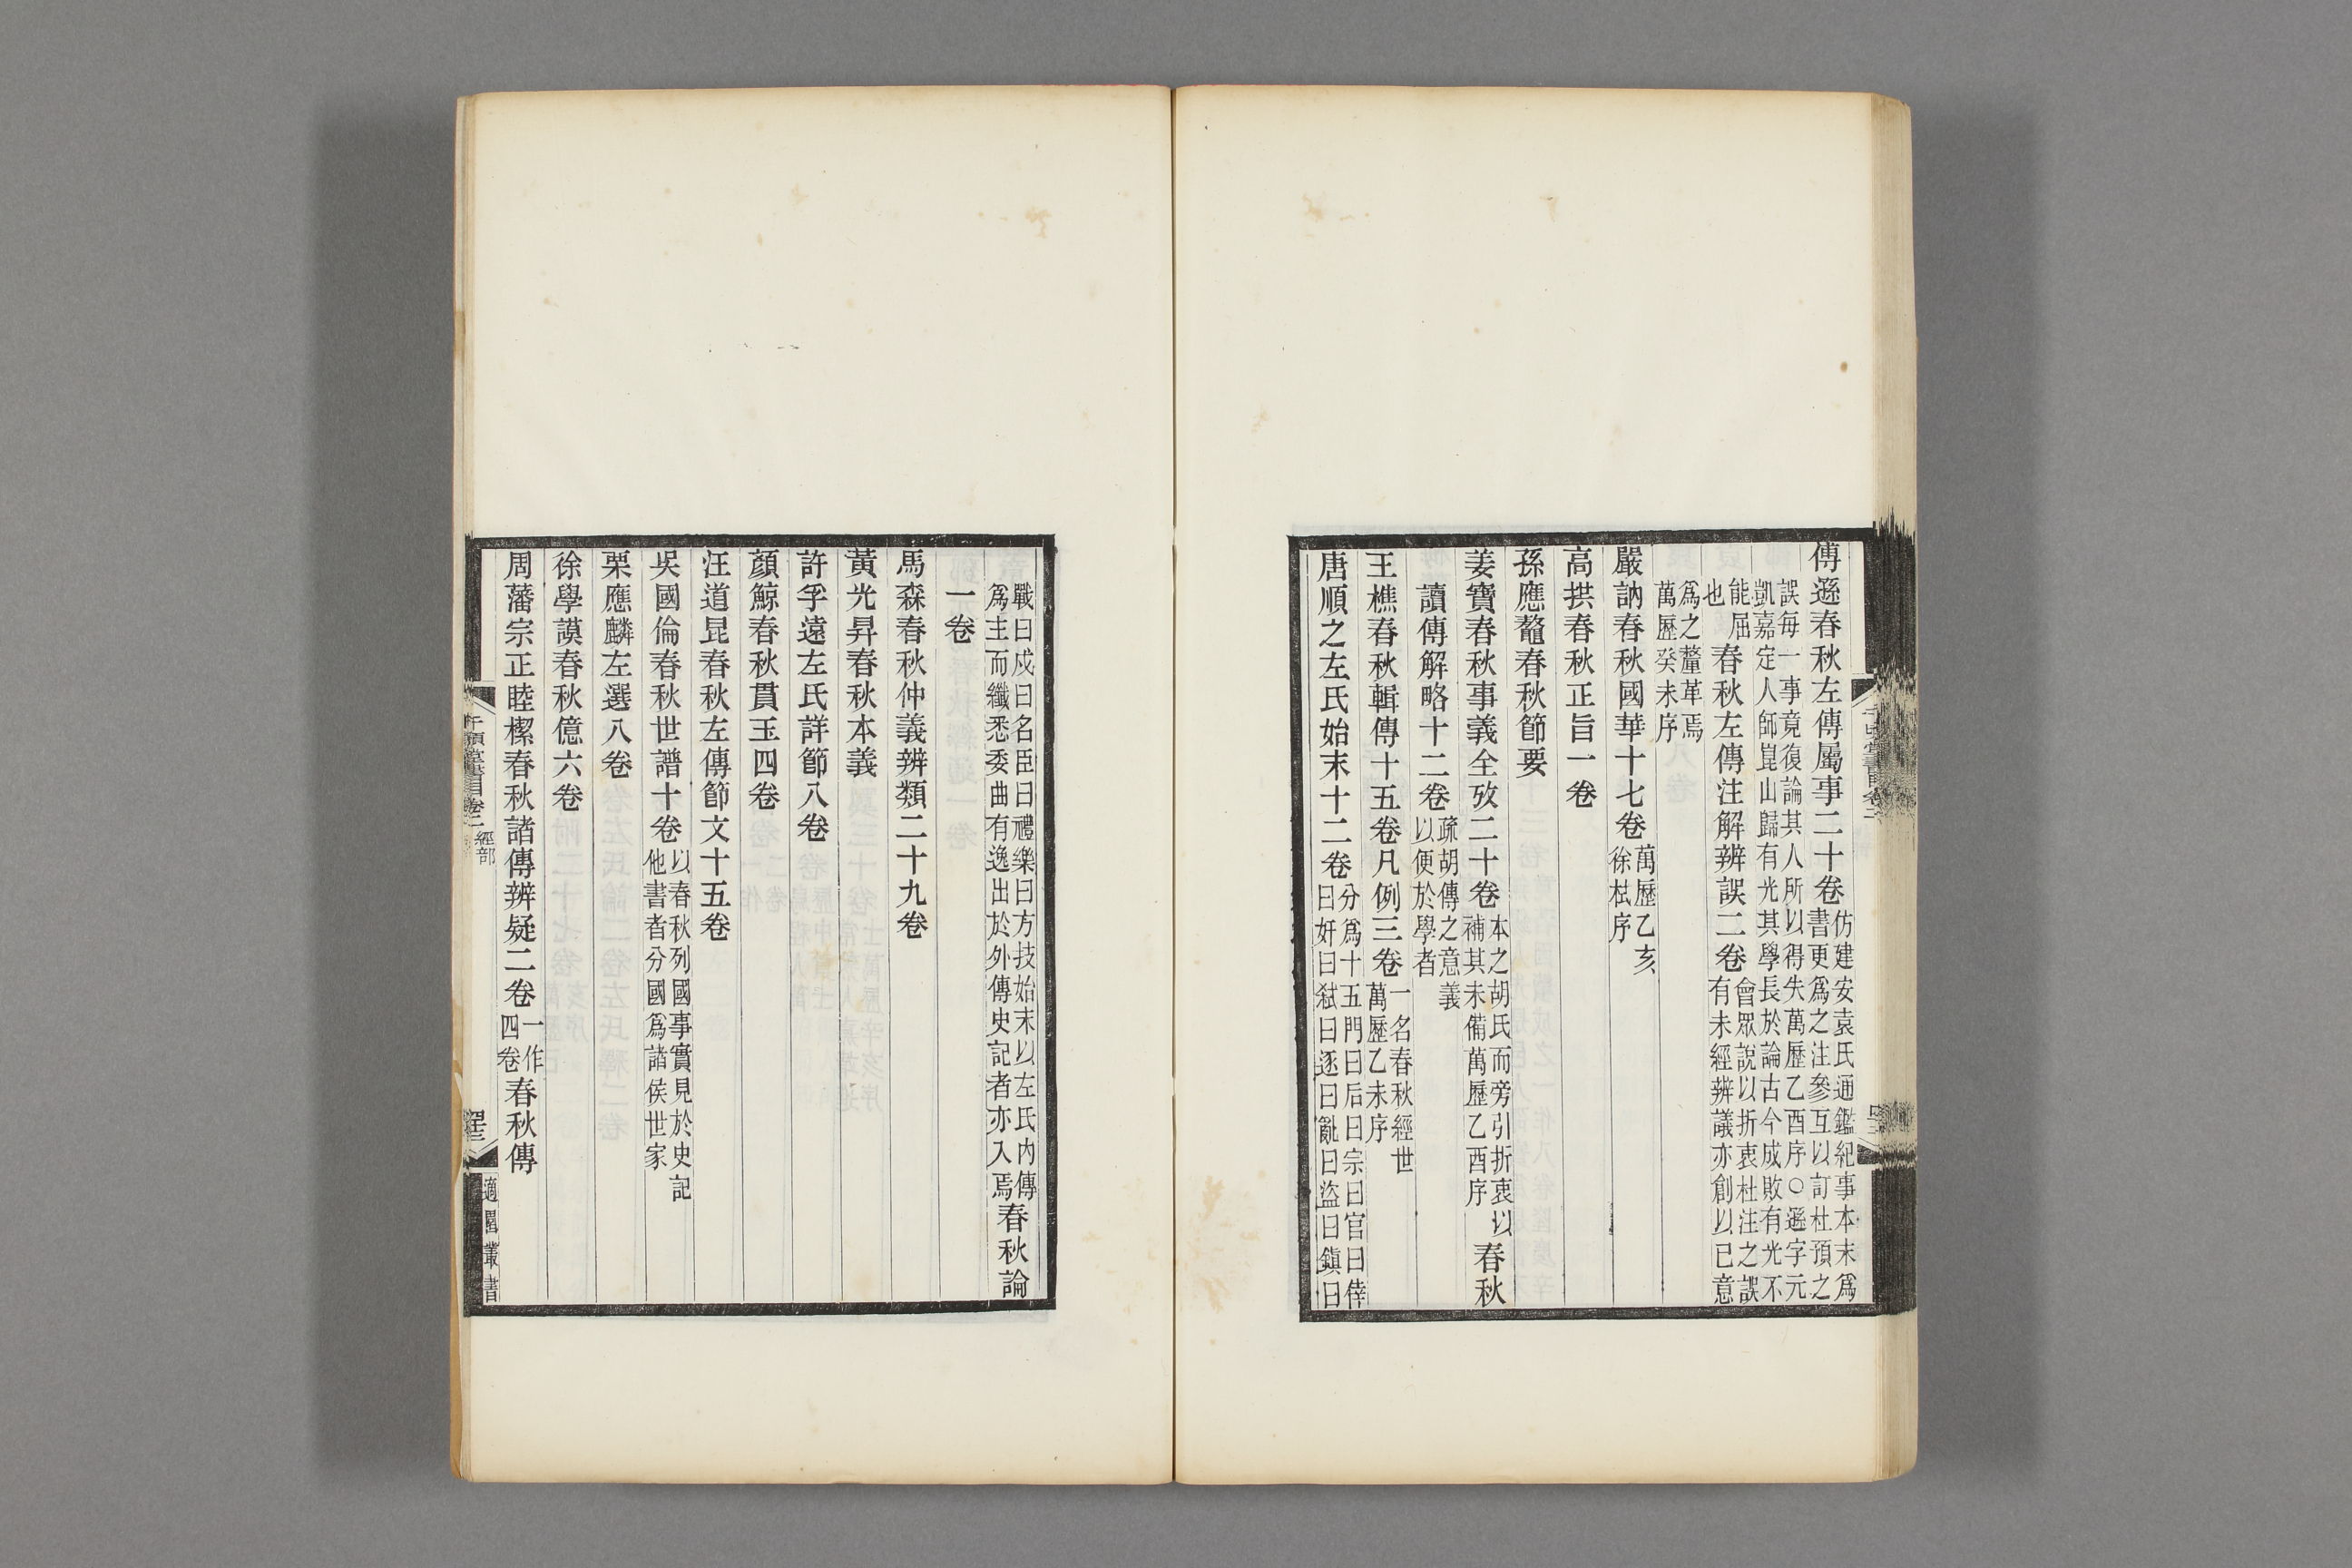 傅遜春秋左傳屬事二十卷仿建安袁氏通鑑紀事本末爲
書更爲之注參互以訂杜預之
誤每一事竟復論其人所以得失萬歷乙酉序○遜字元
凱嘉定人師崑山歸有光其學長於論古今成敗有光不
能屈
也春秋左傳注解辨誤二卷會眾說以折衷杜注之誤
有未經辨議亦創以已意
爲之釐革焉
萬歷癸未序
嚴訥春秋國華十七卷萬歷乙亥
徐栻序
高拱春秋正旨一卷
孫應鼇春秋節要
姜寶春秋事義全攷二十卷本之胡氏而旁引折衷以
補其未備萬歷乙酉序春秋
讀傳解略十二卷疏胡傳之意義
以便於學者
王樵春秋輯傳十五卷凡例三卷一名春秋經世
萬歷乙未序
唐順之左氏始末十二卷分爲十五門曰后曰宗曰官曰倖
曰奸曰弒曰逐曰亂曰盜曰鎭曰
戰曰戍曰名臣曰禮樂曰方技始末以左氏內傳
爲主而纖悉委曲有逸出於外傳史記者亦入焉春秋論
一卷
馬森春秋仲義辨類二十九卷
黃光昇春秋本義
許孚遠左氏詳節八卷
顏鯨春秋貫玉四卷
汪道昆春秋左傳節文十五卷
吳國倫春秋世譜十卷以春秋列國事實見於史記
他書者分國爲諸侯世家
栗應麟左選八卷
徐學謨春秋億六卷
周藩宗正睦㮮春秋諸傳辨疑二卷一作
四卷春秋傳
千頃堂書目卷二 經部
適園叢書